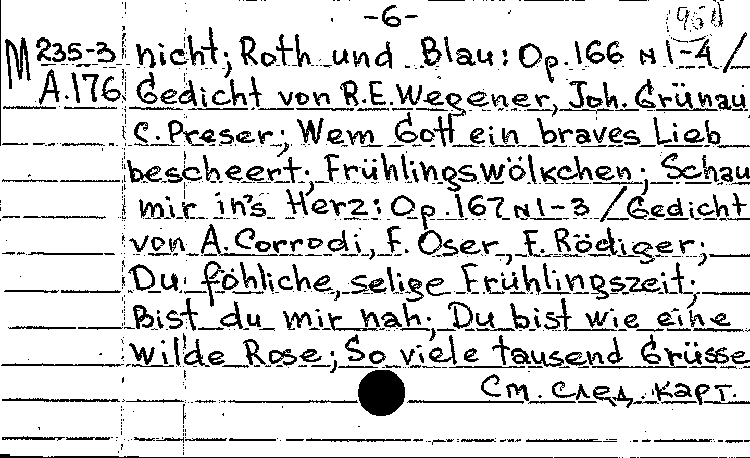 -6- 958
M 235-3 nicht; Roth und Blau: Op. 166 N 1-4 /
A.176 Gedicht von R.E. Wegener, Joh. Grünau
C. Preser; Wem Gott ein braves Lieb
bescheert; Frühlingswölkchen; Schau
mir in's Herz: Op. 167 N 1-3 / Gedicht
von A. Corrodi, F. Oser, F. Rödiger;
Du föhliche, selige Frühlingszeit;
Bist du mir nah; Du bist wie eine
wilde Rose; So viele tausend Grüsse
См. след. карт.